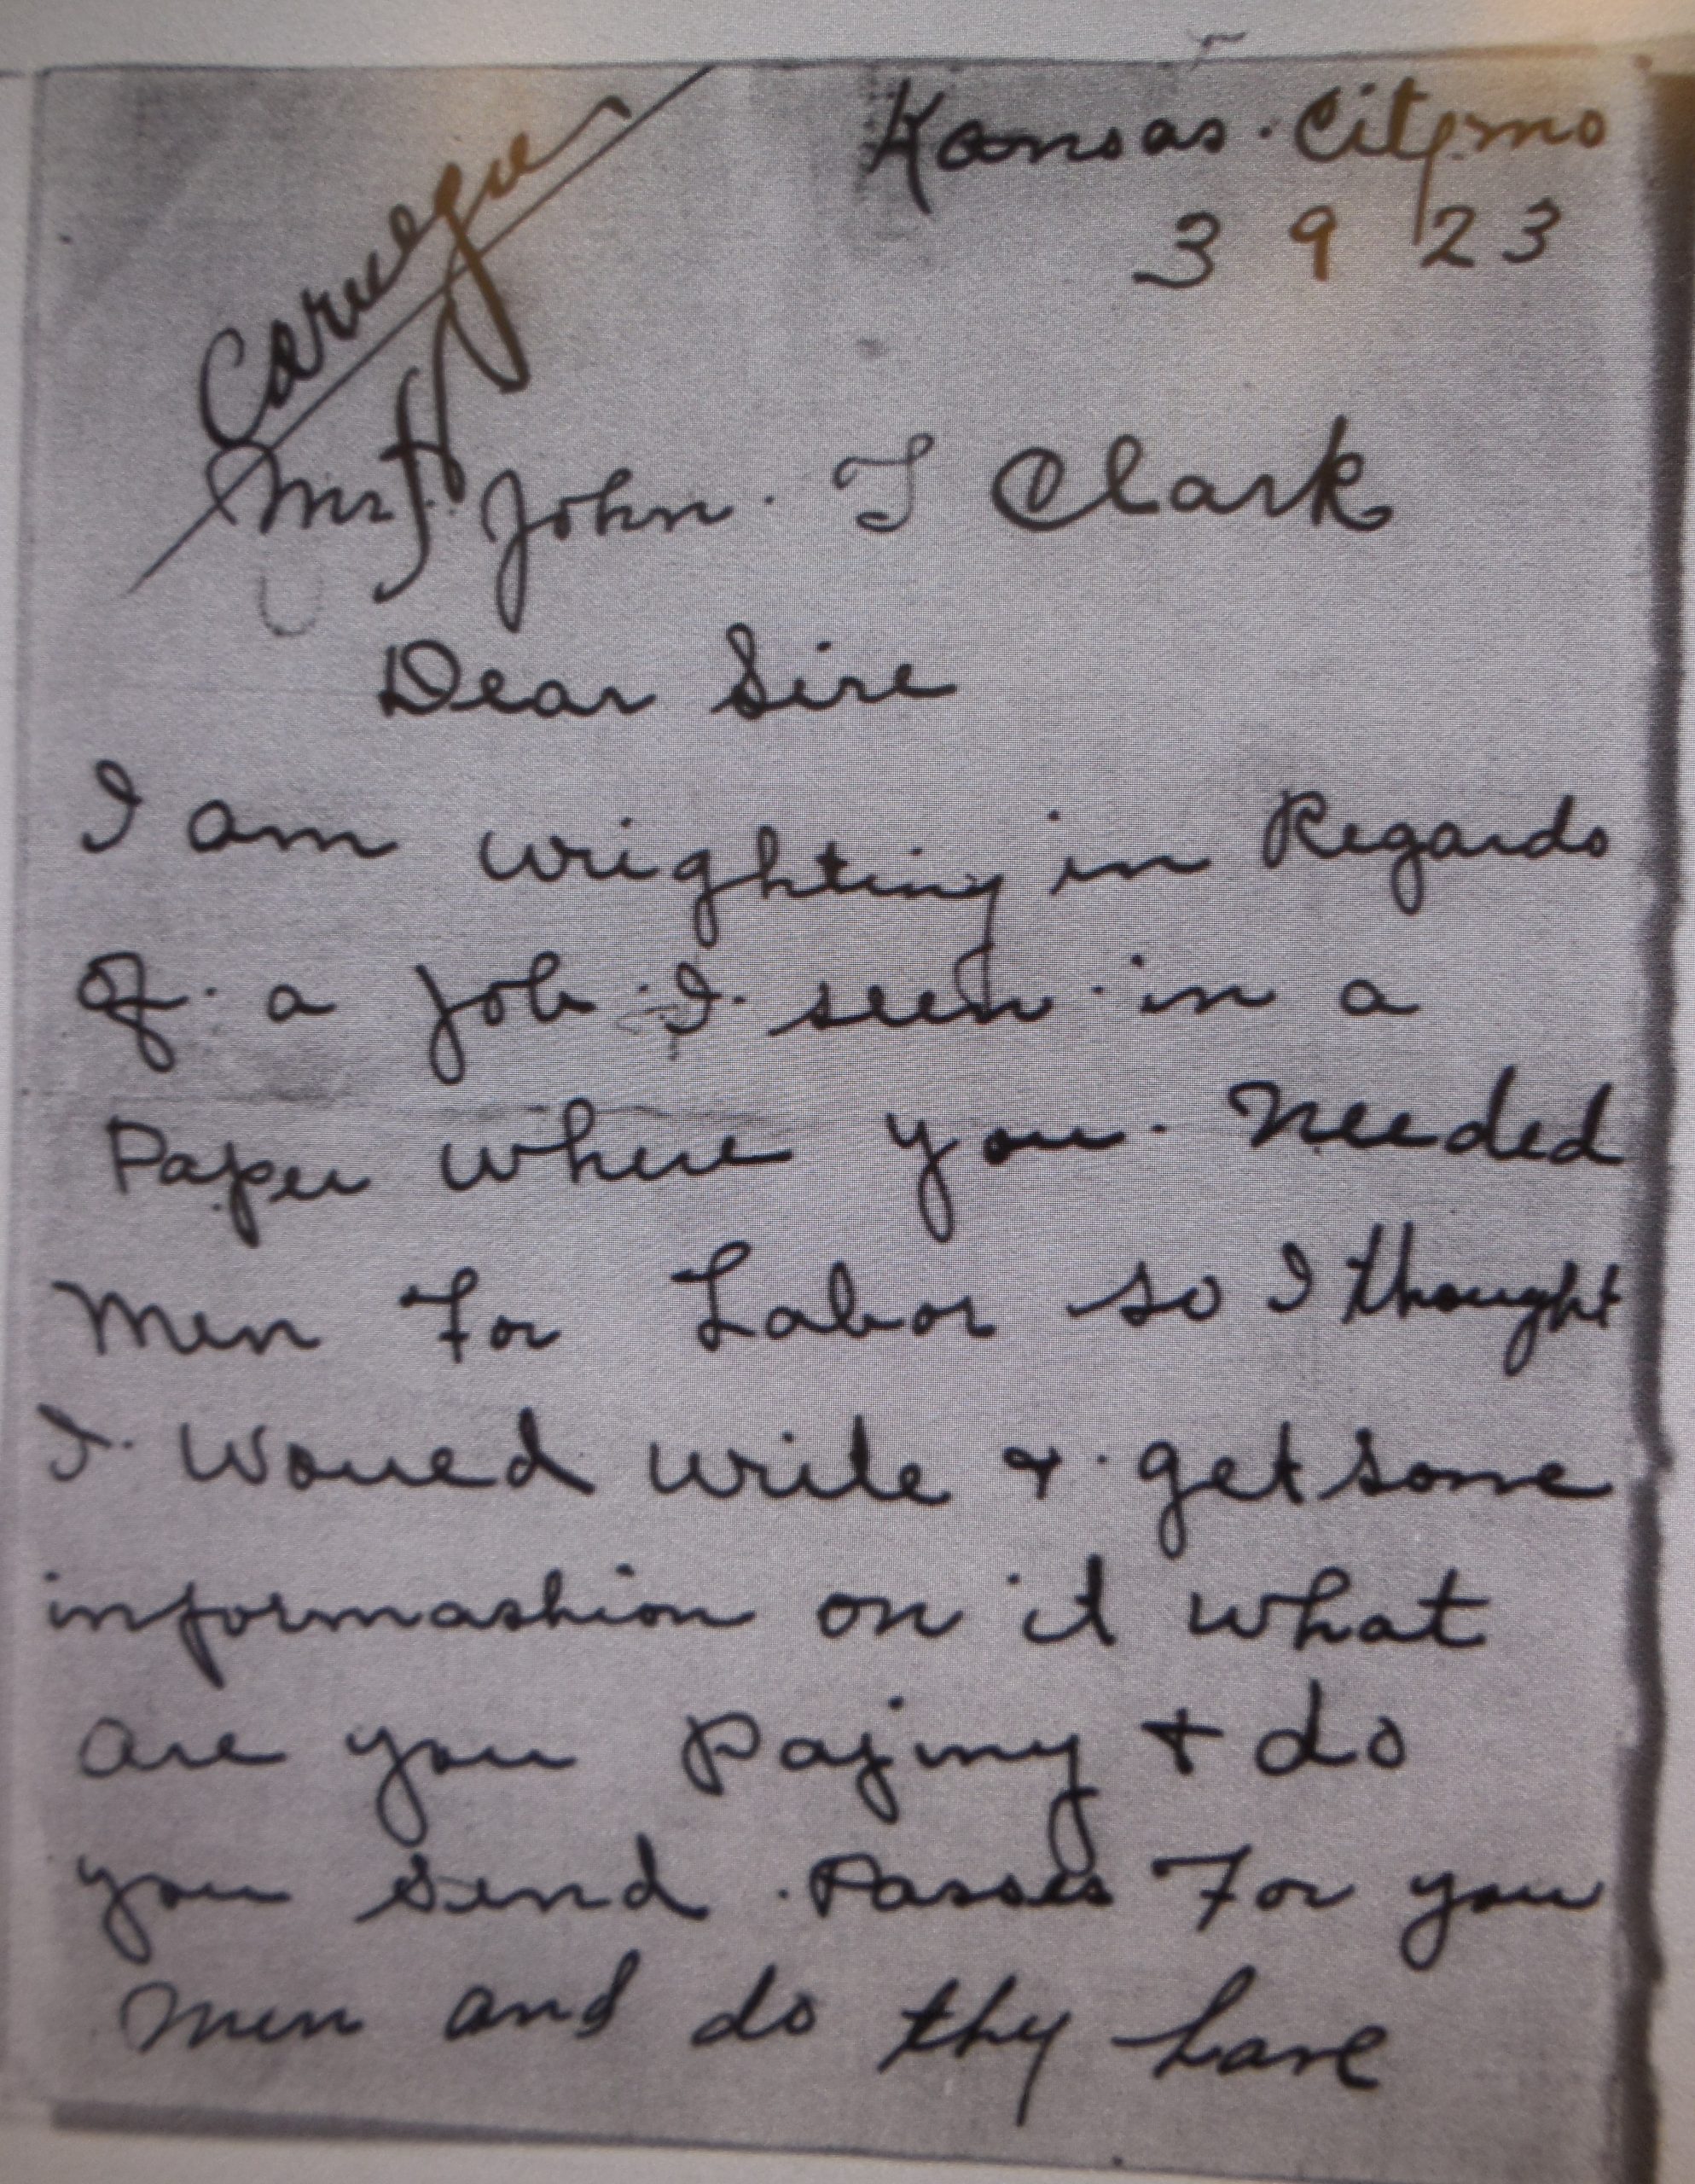 Kansas. City mo
3 9 23
Mr John. T Clark
Dear Sire
I am wrighting in Regards
of. a job. I. seen. in a
Paper where you. needed
men For Labor so I thought
I. Woued write + get some
informashion on it what
are you Paying + do
you send. Passes For you
men and do thy have